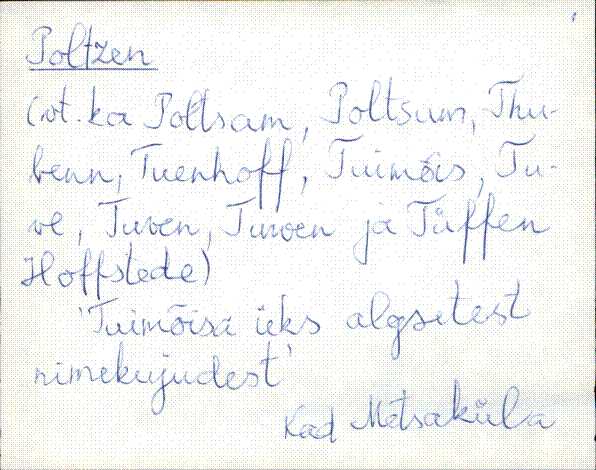 Poltzen
(vt. ka Poltsam, Poltsum, Thu-
benn, Tuenhoff, Tuimõis, Tu-
ve, Tuven, Tuwen ja Tüffen
Hoffstede)
'Tuimõisa üks algsetest
nimekujudest'
Kad Metsaküla